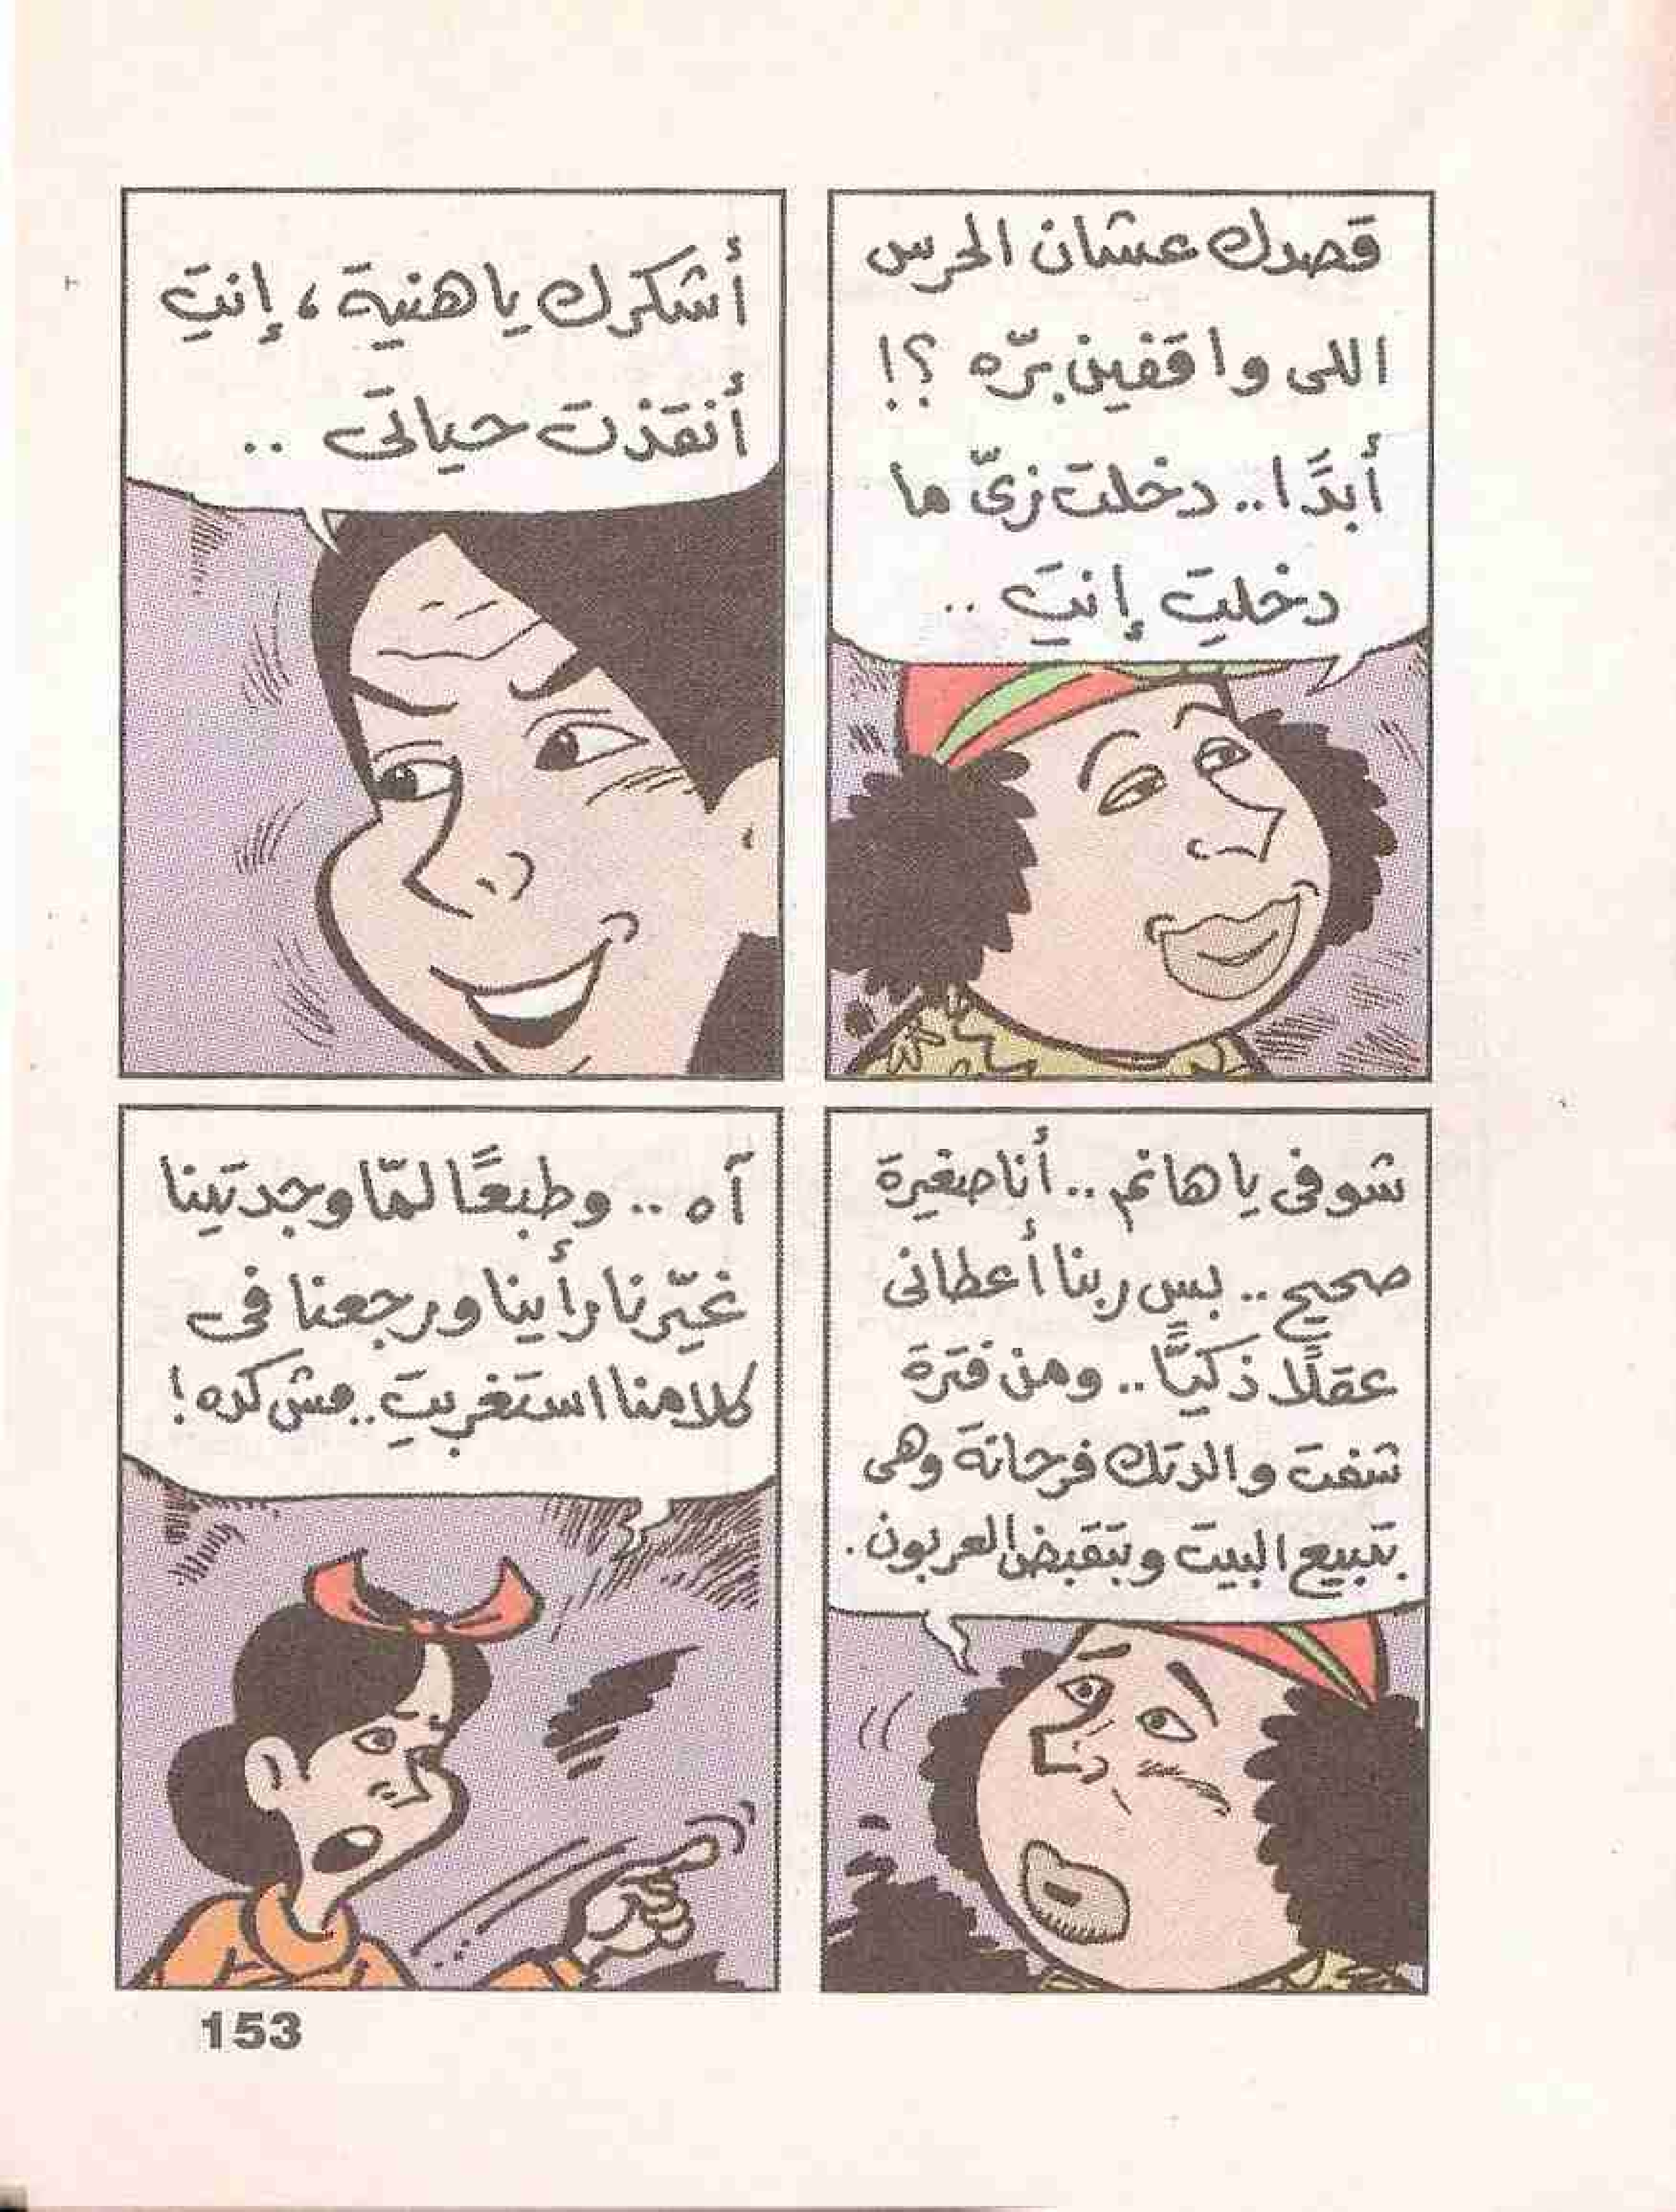 قصدك عشان الحرس
اللى واقفين برّه ؟!
أبدًا.. دخلت زىّ ما
دخلتِ إنتِ ..
أشكرك يا هنية ، إنتِ
أنقذت حياتى ..
شوفى يا هانم .. أنا صغيرة
صحيح .. بس ربنا أعطانى
عقلًا ذكيًّا .. ومن فترة
شفت والدتك فرحانة وهى
بتبيع البيت وبتقبض العربون .
آه .. وطبعًا لمّا وجدتينا
غيّرنا رأينا ورجعنا فى
كلامنا استغربتِ .. مش كده !
153